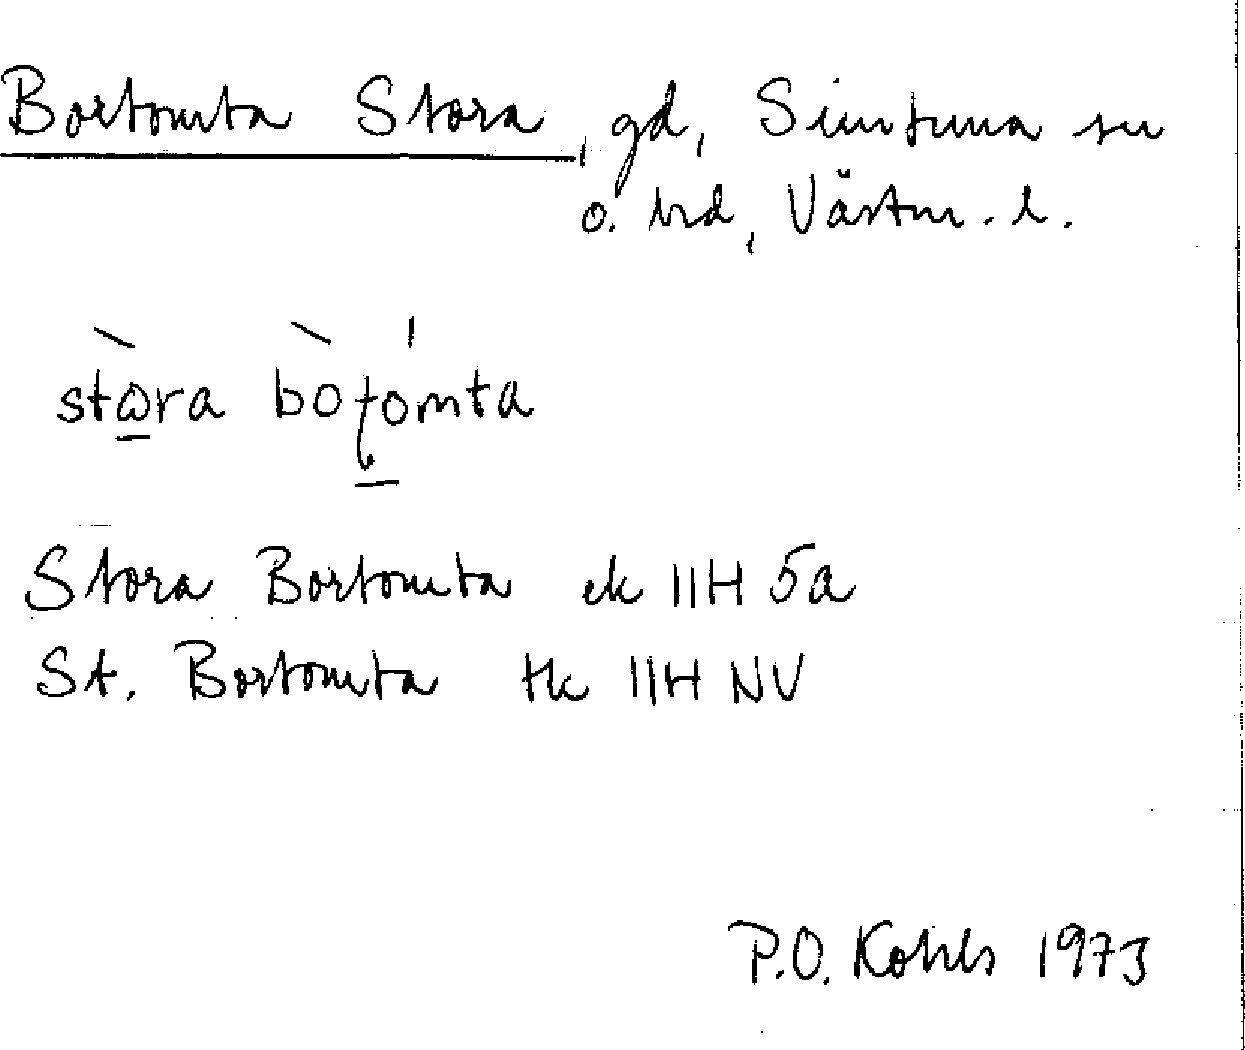 Bortomta Stora, gd, Simtuna sn
o. hd, Västm. l.
stɷra bòʈomta
Stora Bortomta ek 11H 5a
St. Bortomta tk 11H NV
P.O. Kohls 1973